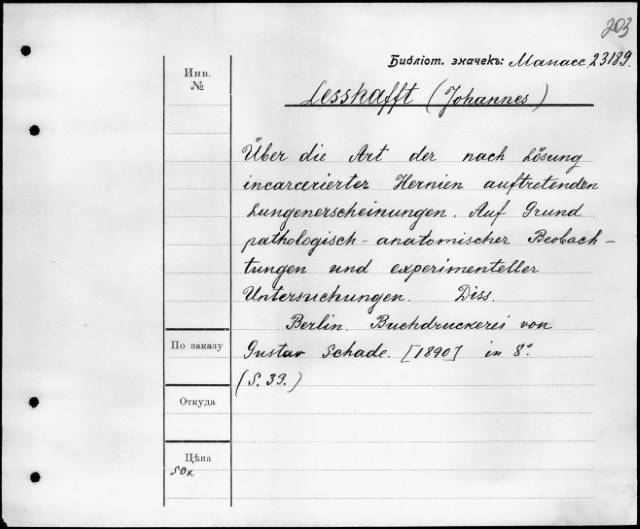 203
Библіот. значекъ: Манасс 23189.
Инв.
№
Lesshafft (Johannes)
Über die Art der nach Lösung
incarcerierter Hernien auftretenden
Lungenerscheinungen. Auf Grund
pathologisch-anatomischer Beobach-
tungen und experimenteller
Untersuchungen. Diss.
Berlin. Buchdruckerei von
По заказу
Gustav Schade. [1890] in 8°.
(S. 33.)
Откуда
Цѣна
50к